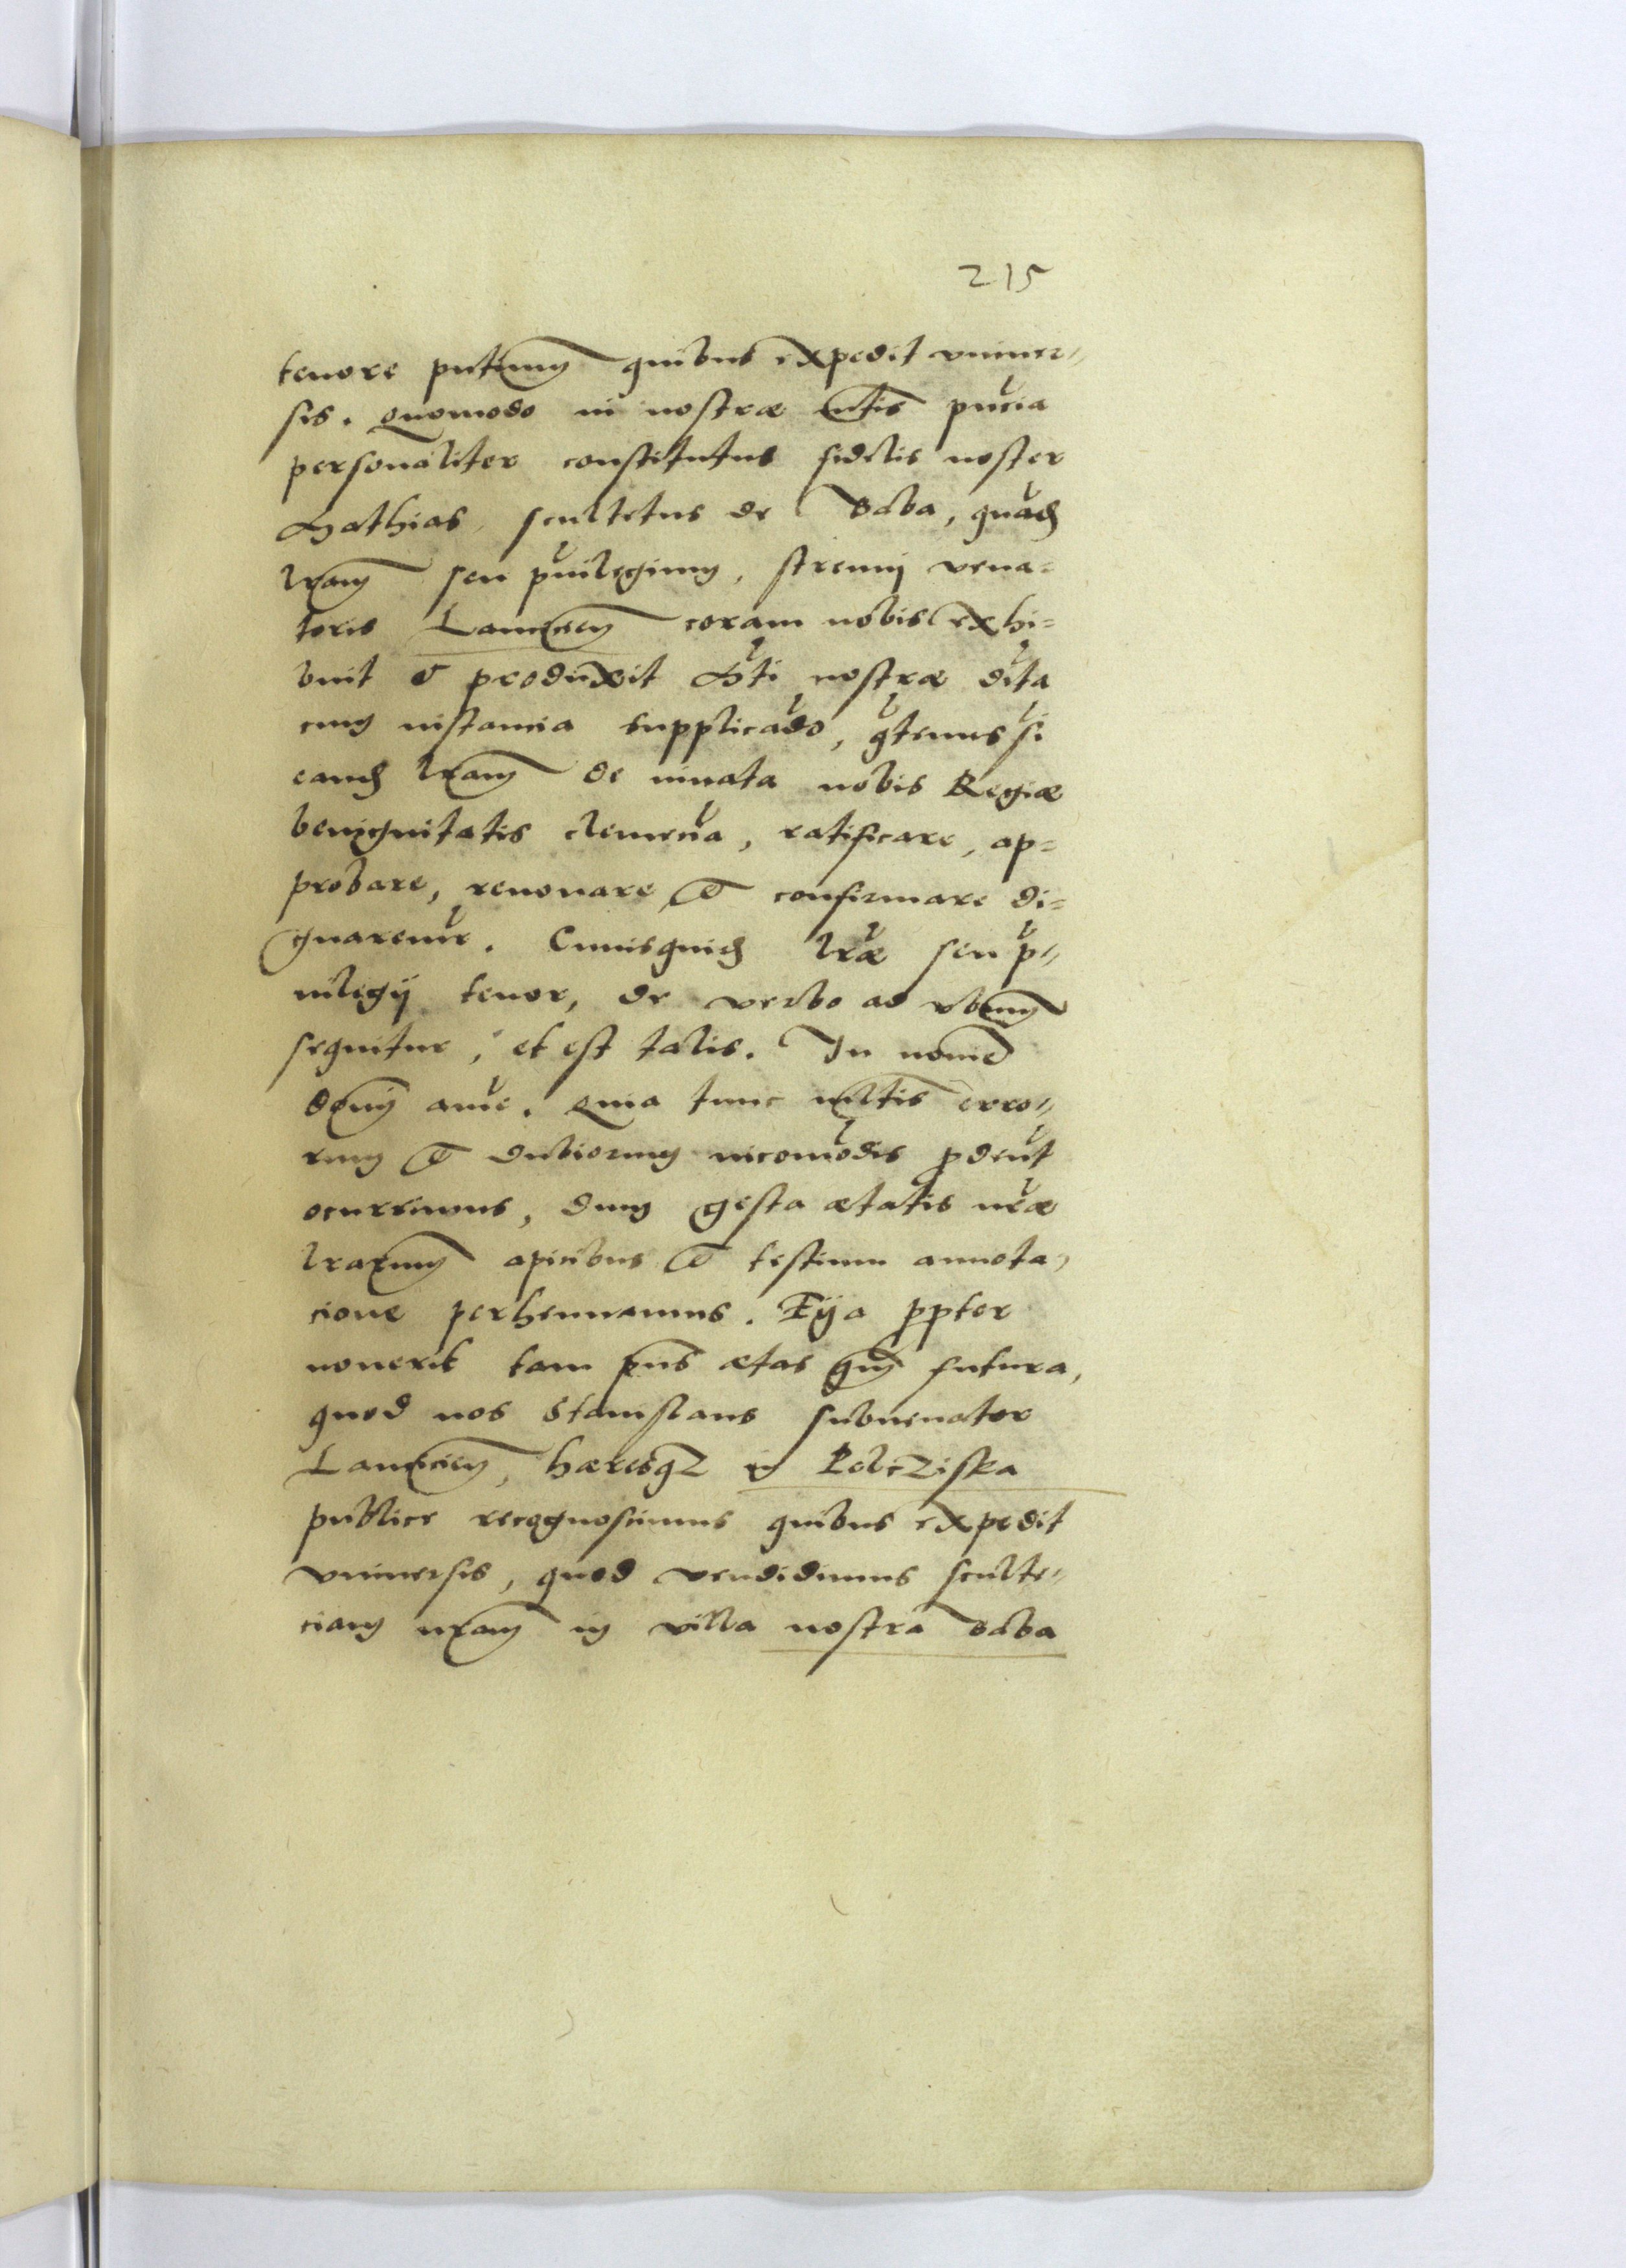 215
tenore pntium quibus expedit vniuer„
sis. Quomodo in nostræ mtis pncia
personaliter constitutus fidelis noster
Mathias, scultetus de Baba, quadã
lram seu puilegium, strenuj vena=
toris Lanciciens coram nobis exhi=
buit & produxit Mti nostræ dita
cum instancia supplicãdo, qtenus si
eand lram de innata nobis Regiæ
benignitatis clemencia, ratificare, ap=
probare, renouare & confirmare di=
gnaremur. Cuiusquid lræ seu p„
uilegij tenor, de verbo ad vbum
sequitur, et est talis. In nomine
dnj ame. Quia tunc multis erro„
rum & dubiorum incomodis pdeut
ocurrimus, dum gesta ætatis nræ
lrarum apicibus & testium annota„
cione perhennamus. Eya ppter
nouerit tam pns ætas qm futura,
quod nos Stanislaus subuenator
Lanciciens, hæresqz in Pelcziska
publice recognoscimus quibus expedit
vniuersis, quod vendidimus sculte„
ciam nram in villa nostra Baba